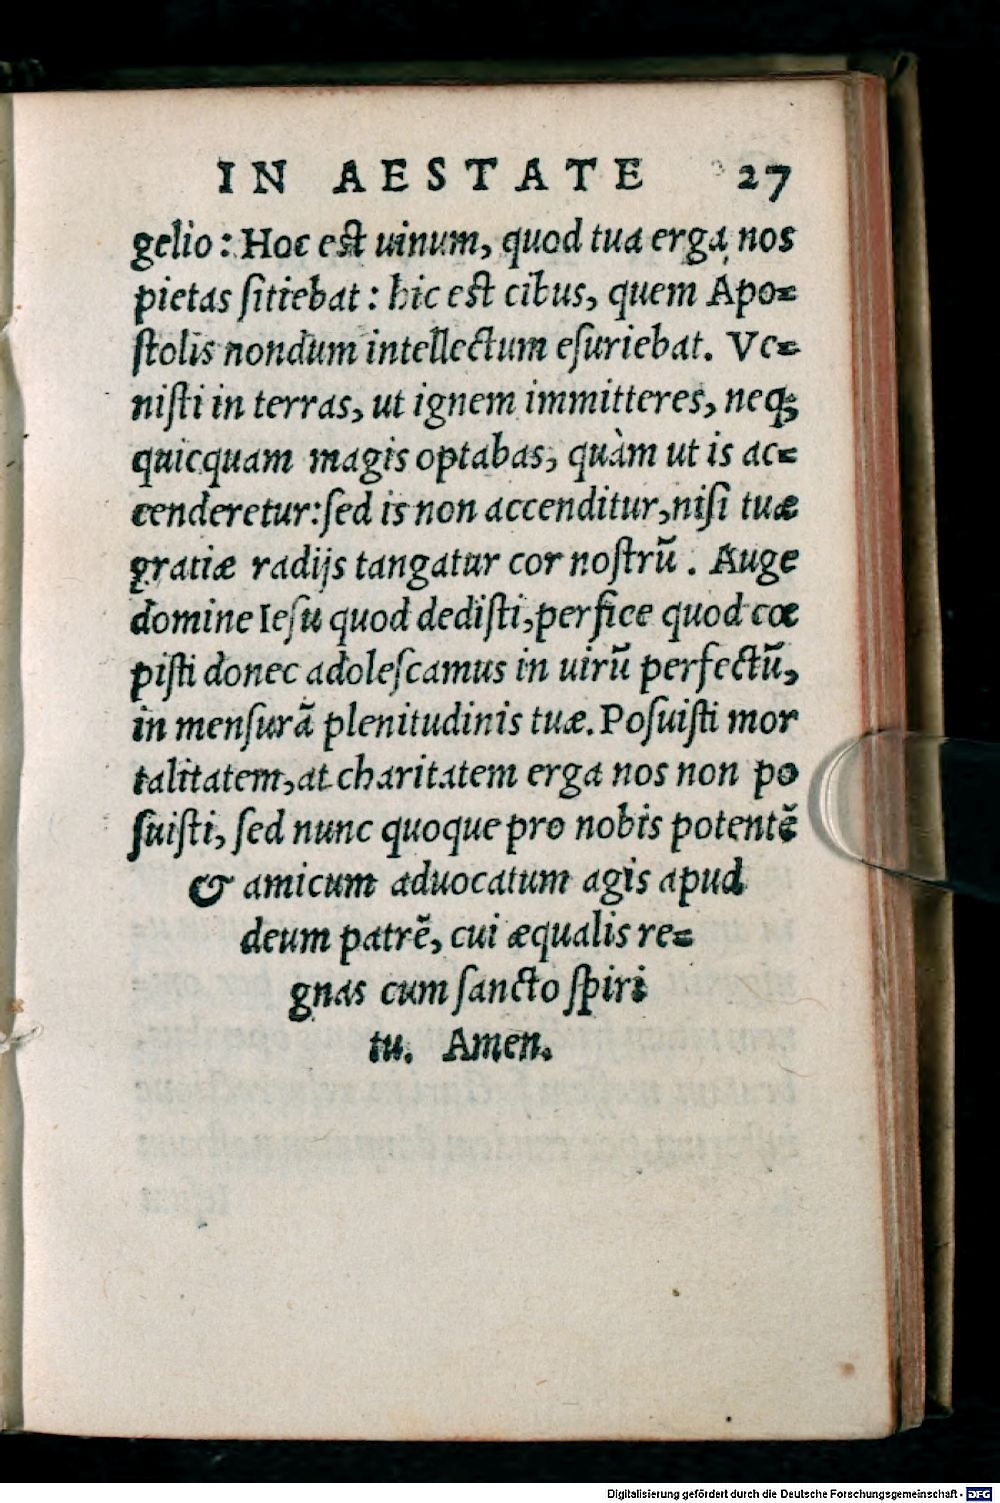 IN AESTATE 27
gelio: Hoc est uinum, quod tua erga nos
pietas ſitiebat: hic est cibus, quem Apo=
ſtolis nondum intellectum eſuriebat. Ve=
niſti in terras, ut ignem immitteres, neq;
quicquam magis optabas, quàm ut is ac=
cenderetur: ſed is non accenditur, niſi tuæ
gratiæ radijs tangatur cor noſtrũ. Auge
domine Ieſu quod dediſti, perfice quod cœ
piſti donec adoleſcamus in uirũ perfectũ,
in menſurã plenitudinis tuæ. Poſuiſti mor
talitatem, at charitatem erga nos non po
ſuiſti, ſed nunc quoque pro nobis potentẽ
& amicum aduocatum agis apud
deum patrẽ, cui æqualis re=
gnas cum ſancto ſpiri
tu. Amen.
Digitalisierung gefördert durch die Deutsche Forschungsgemeinschaft - DFG